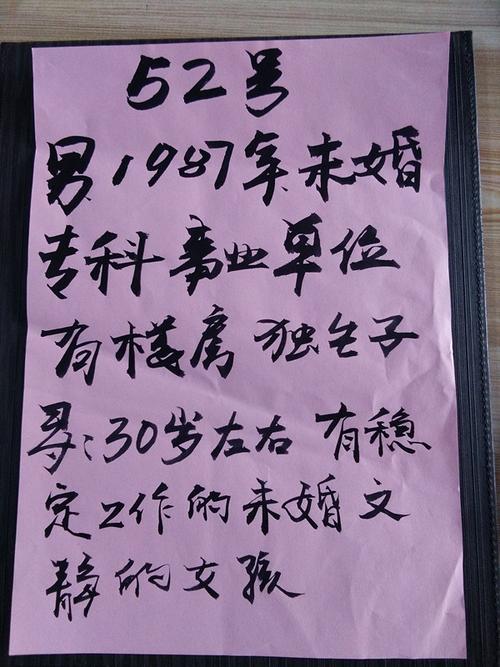 52号
男 1987年 未婚
专科 事业单位
有楼房 独生子
寻：30岁左右 有稳
定工作的未婚文
静的女孩